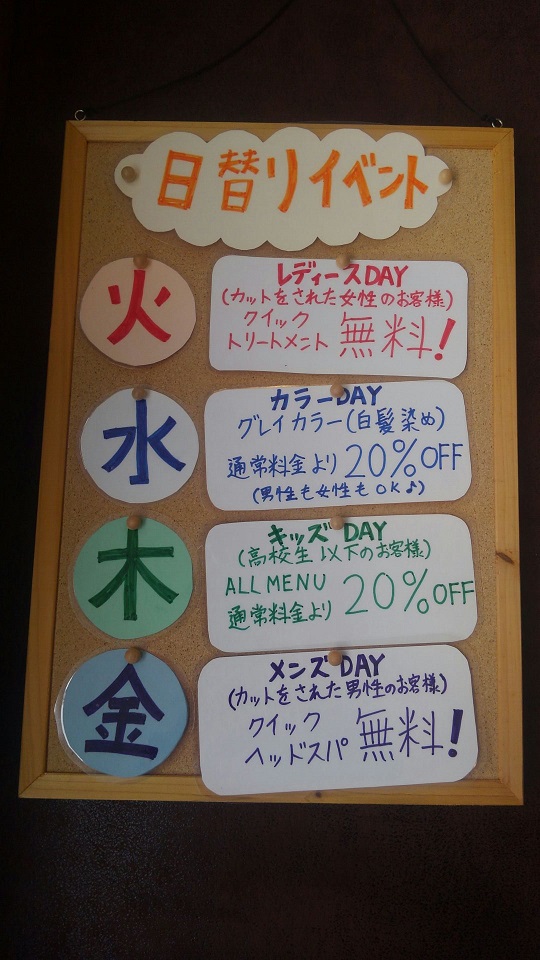 日替りイベント
火
レディースDAY
(カットをされた女性のお客様)
クイック
トリートメント 無料!
水
カラーDAY
グレイカラー(白髪染め)
通常料金より 20%OFF
(男性も女性もOK♪)
木
キッズDAY
(高校生以下のお客様)
ALL MENU
通常料金より 20%OFF
金
メンズDAY
(カットをされた男性のお客様)
クイック
ヘッドスパ 無料!